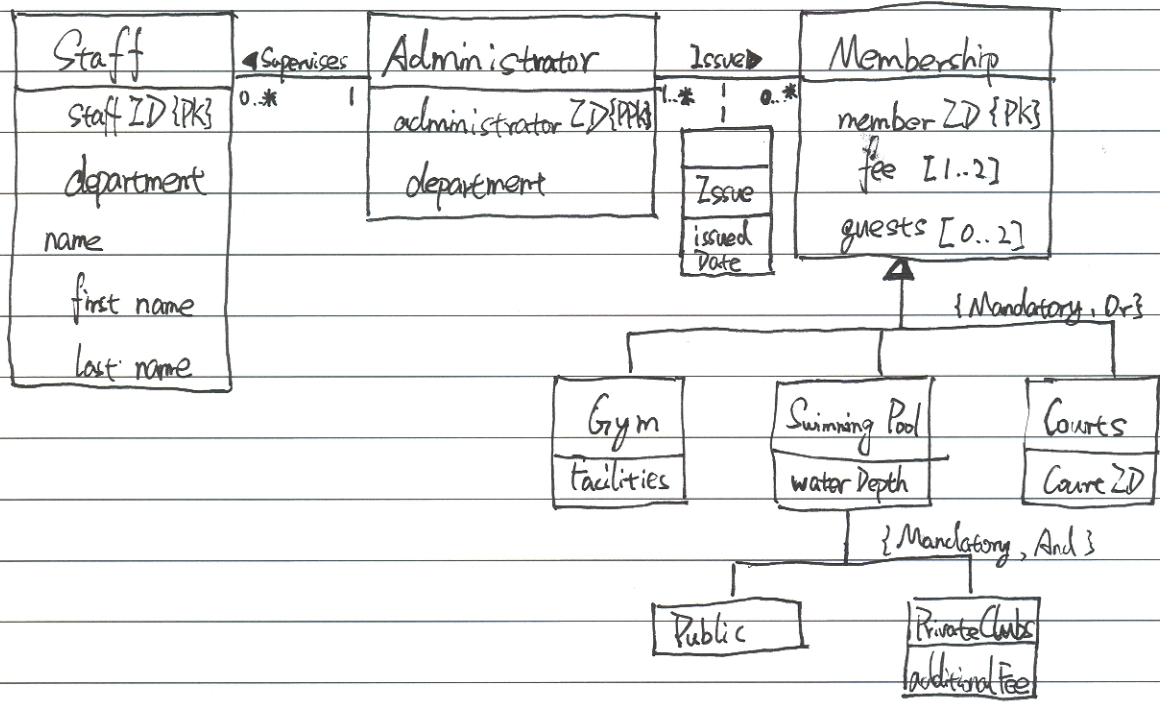 Staff
staff ID {PK}
department
name
first name
last name
◀Supervises
0..* 1
Administrator
administrator ID{PPK}
department
Issue▶
1..* 0..*
Issue
issued
Date
Membership
member ID {PK}
fee [1..2]
guests [0..2]
{Mandatory, Or}
Gym
facilities
Swimming Pool
waterDepth
Courts
CourtID
{Mandatory, And}
Public
PrivateClubs
additionalFee